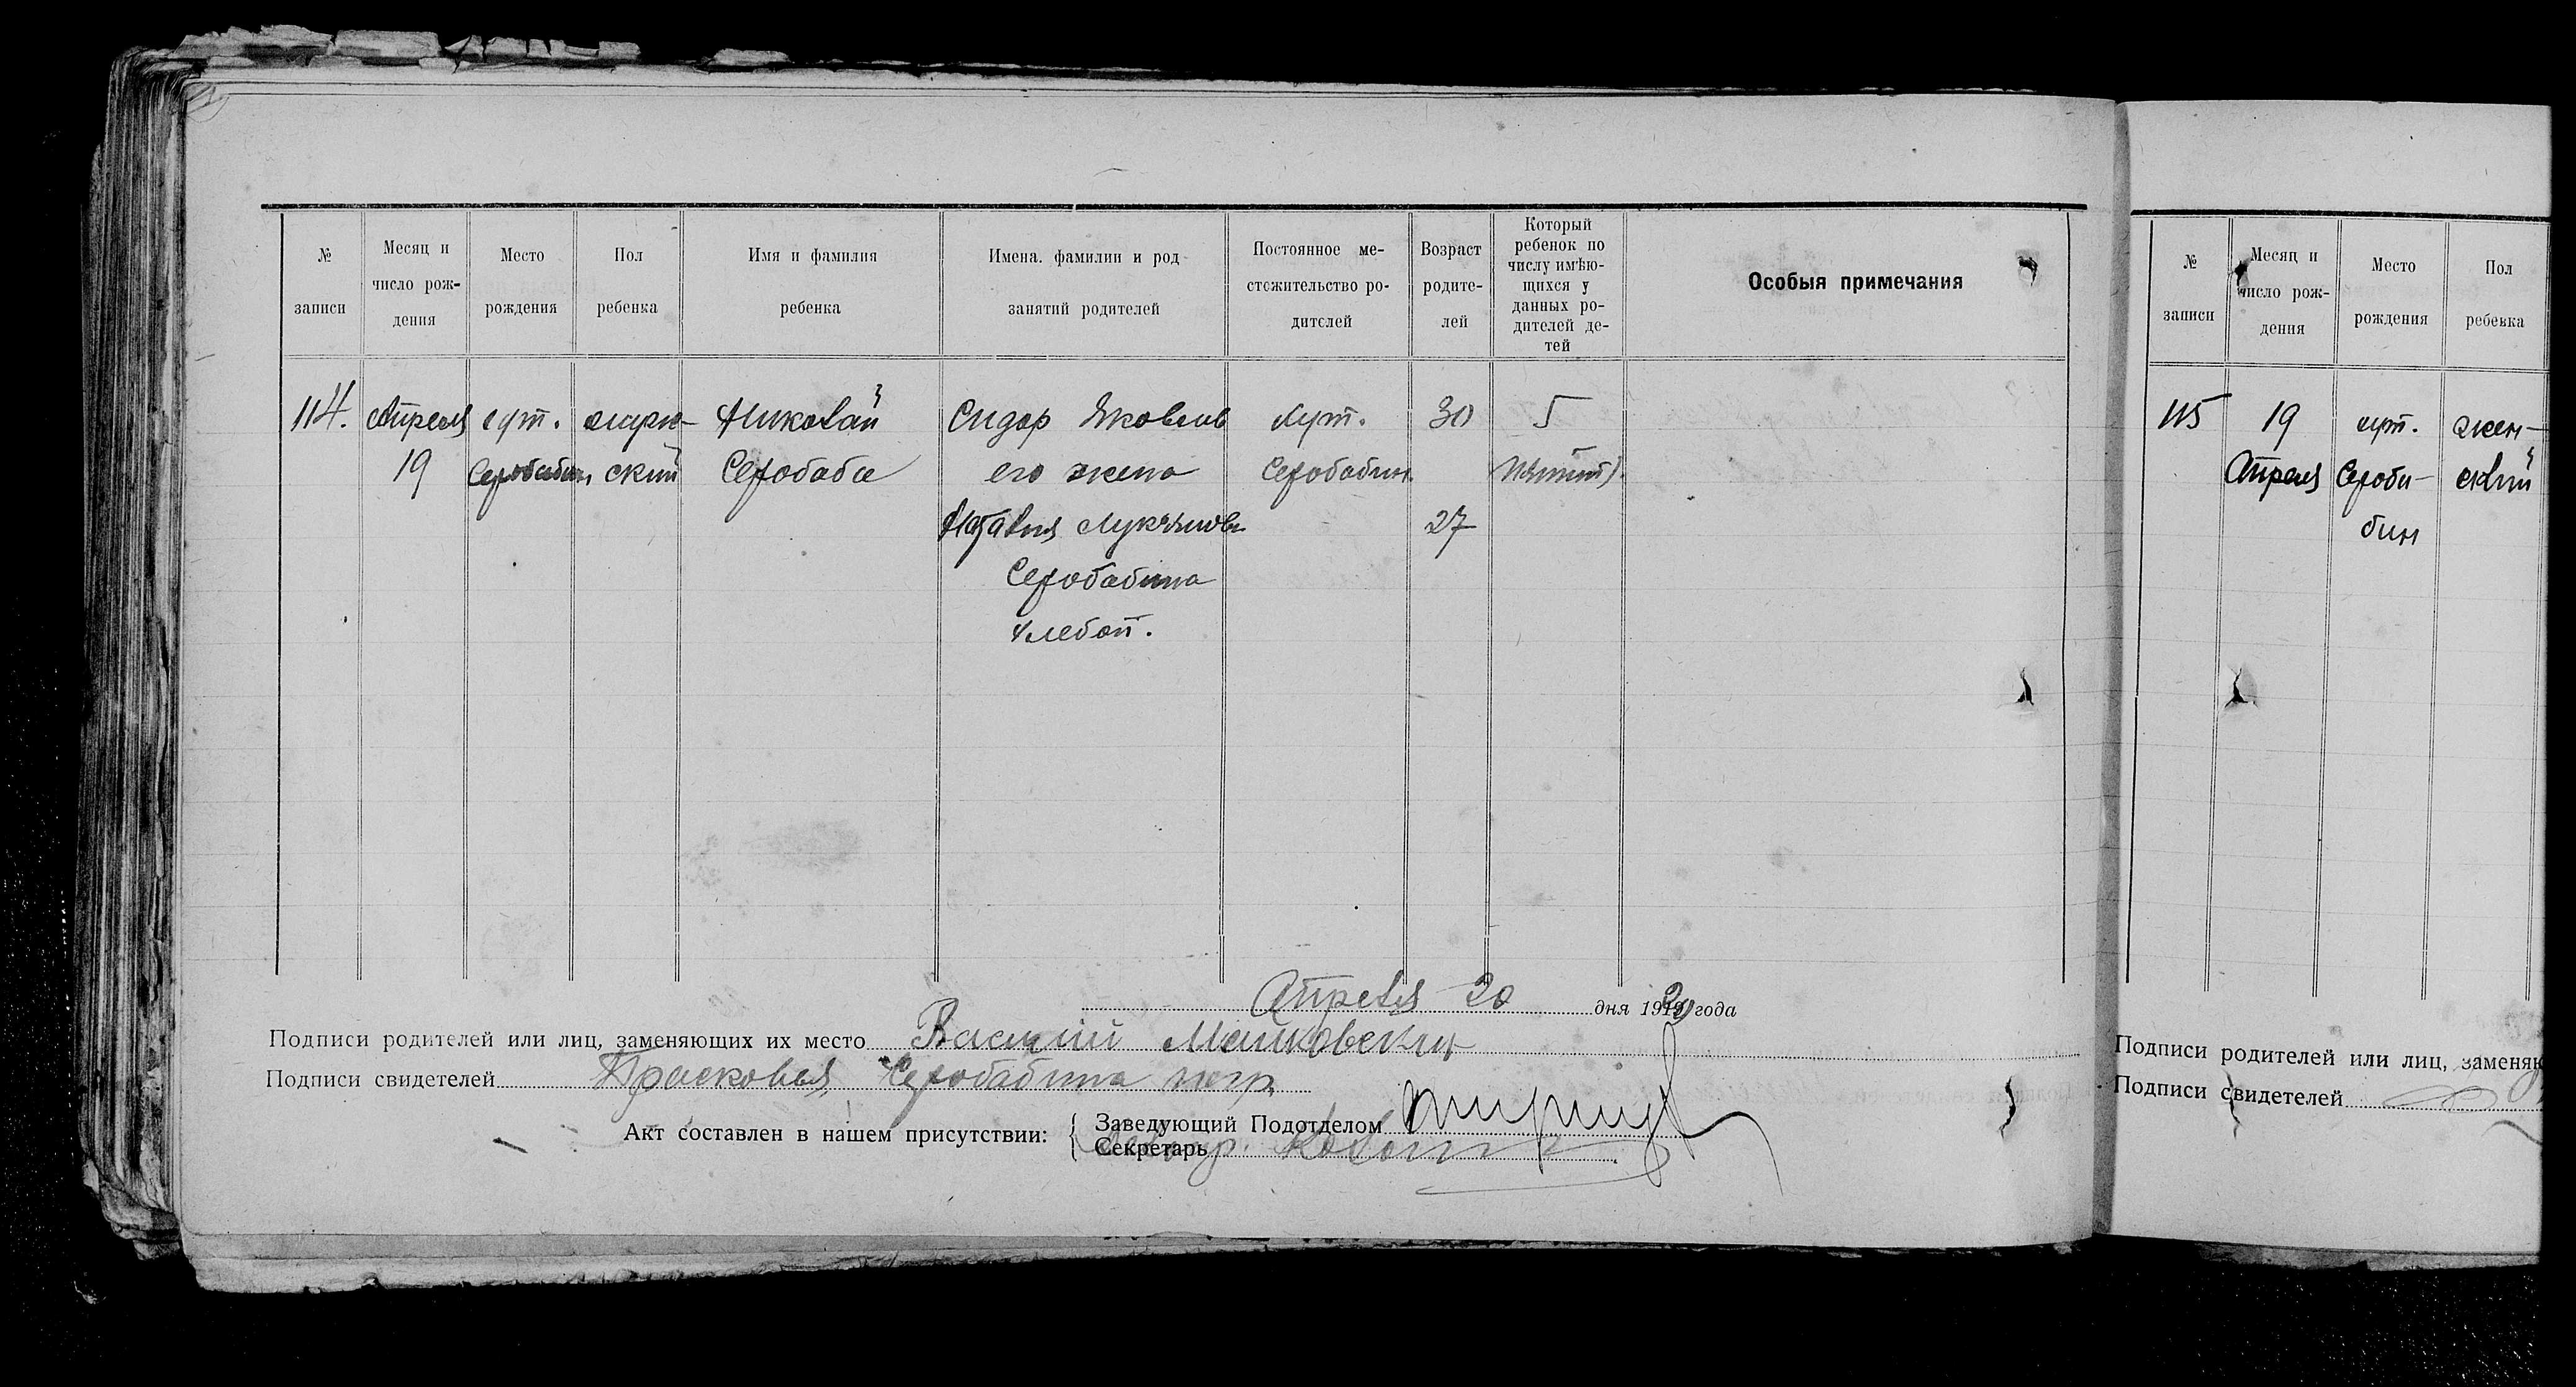 № записи
Месяц и число рож-дения
Место рождения
Пол ребенка
Имя и фамилия ребенка
Имена. фамилии и род занятий родителей
Постоянное ме-стожительство ро-дителей
Возраст родите-лей
Который ребенок по числу имѣю-щихся у данных ро-дителей де-тей
Особыя примечания
114. Апреля хут. мужс- Николай Сидор Яковлев хут. 30 5
19 Серобабин ский Серобаба его жена Серобабин. (пятый).
Наталия Лукьянова 27
Серобабина
хлебоп.
Апреля 20 дня 1920 года
Подписи родителей или лиц, заменяющих их место Василий
Подписи свидетелей Прасковья Серобабина негр.
Акт составлен в нашем присутствии:
Заведующий Подотделом
Секретарь
№ записи
Месяц и число рож-дения
Место рождения
Пол ребенка
115 19 хут. жен-
Апреля Сероба- ский
бин
Подписи родителей или лиц, заменяю
Подписи свидетелей